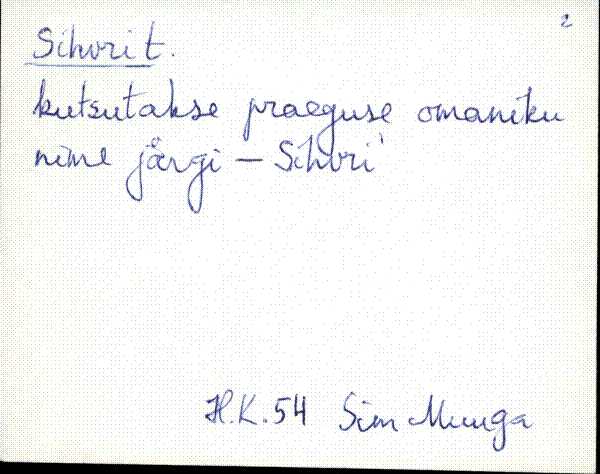 2
Sihvri t.
kutsutakse praeguse omaniku
nime järgi – Sihvri'
H.K. 54 Sim Muuga